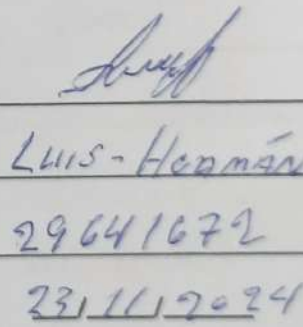 Luis - Hernán
29641672
23/11/2024